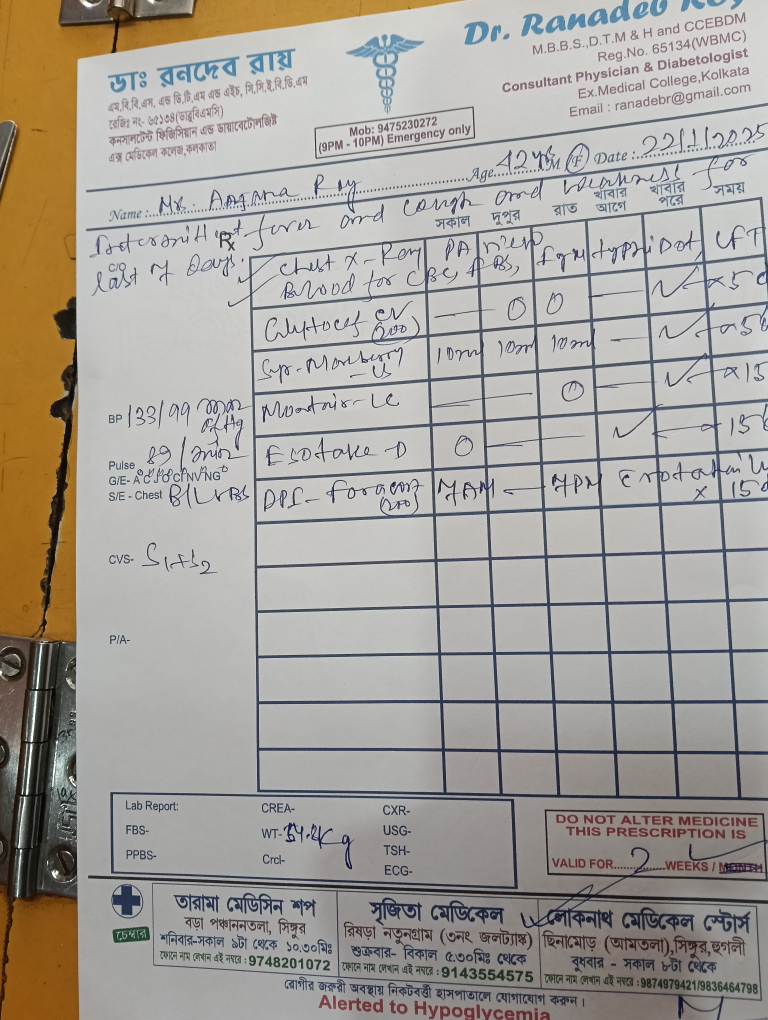 Dr. Ranadeb Roy
ডাঃ রনদেব রায়
এম.বি.বি.এস, এন্ড ডি.টি.এম এন্ড এইচ, সি.সি.ই.বি.ডি.এম
রেজিঃ নং- ৬৫১৩৪(ডাব্লুবিএমসি)
কনসালটেন্ট ফিজিসিয়ান এন্ড ডায়াবেটোলজিষ্ট
এক্স মেডিকেল কলেজ, কলকাতা
M.B.B.S.,D.T.M & H and CCEBDM
Reg.No. 65134(WBMC)
Consultant Physician & Diabetologist
Ex.Medical College,Kolkata
Email : ranadebr@gmail.com
Mob: 9475230272
(9PM - 10PM) Emergency only
Name : Roy Age 42 yrs M (F) Date : 22/1/2025
fever and cough and weakness for
last 7 Days.
C/O
Rx
সকাল দুপুর রাত খাবার আগে খাবার পরে সময়
Chest X-Ray PA view
Blood for CBC, FBS, LFT
CV (200) — 0 0 — ✓ x 5d
Syp- 10ml 10ml 10ml — ✓
Montair-LC — 0 — ✓ x 15
D 0 — ✓ — 15
DPI- (200) 7AM — 7PM x 15d
BP 133/99 of Hg
Pulse 89 /
G/E- A C J O C NV NG
S/E - Chest B/L VBS
CVS- S1+S2
P/A-
Lab Report: CREA- CXR-
FBS- WT- Kg USG-
PPBS- Crcl- TSH-
ECG-
DO NOT ALTER MEDICINE
THIS PRESCRIPTION IS
VALID FOR 2 WEEKS / MONTH
চেম্বার
তারামা মেডিসিন শপ
বড়া পঞ্চাননতলা, সিঙ্গুর
শনিবার-সকাল ৯টা থেকে ১০.৩০মিঃ
ফোনে নাম লেখান এই নম্বরে : 9748201072
সুজিতা মেডিকেল
রিষড়া নতুনগ্রাম (৩নং জলট্যাঙ্ক)
শুক্রবার- বিকাল ৫.৩০মিঃ থেকে
ফোনে নাম লেখান এই নম্বরে : 9143554575
লোকনাথ মেডিকেল স্টোর্স
ছিনামোড় (আমতলা),সিঙ্গুর,হুগলী
বুধবার - সকাল ৮টা থেকে
ফোনে নাম লেখান এই নম্বরে : 9874979421/9836464798
রোগীর জরুরী অবস্থায় নিকটবর্তী হাসপাতালে যোগাযোগ করুন।
Alerted to Hypoglycemia